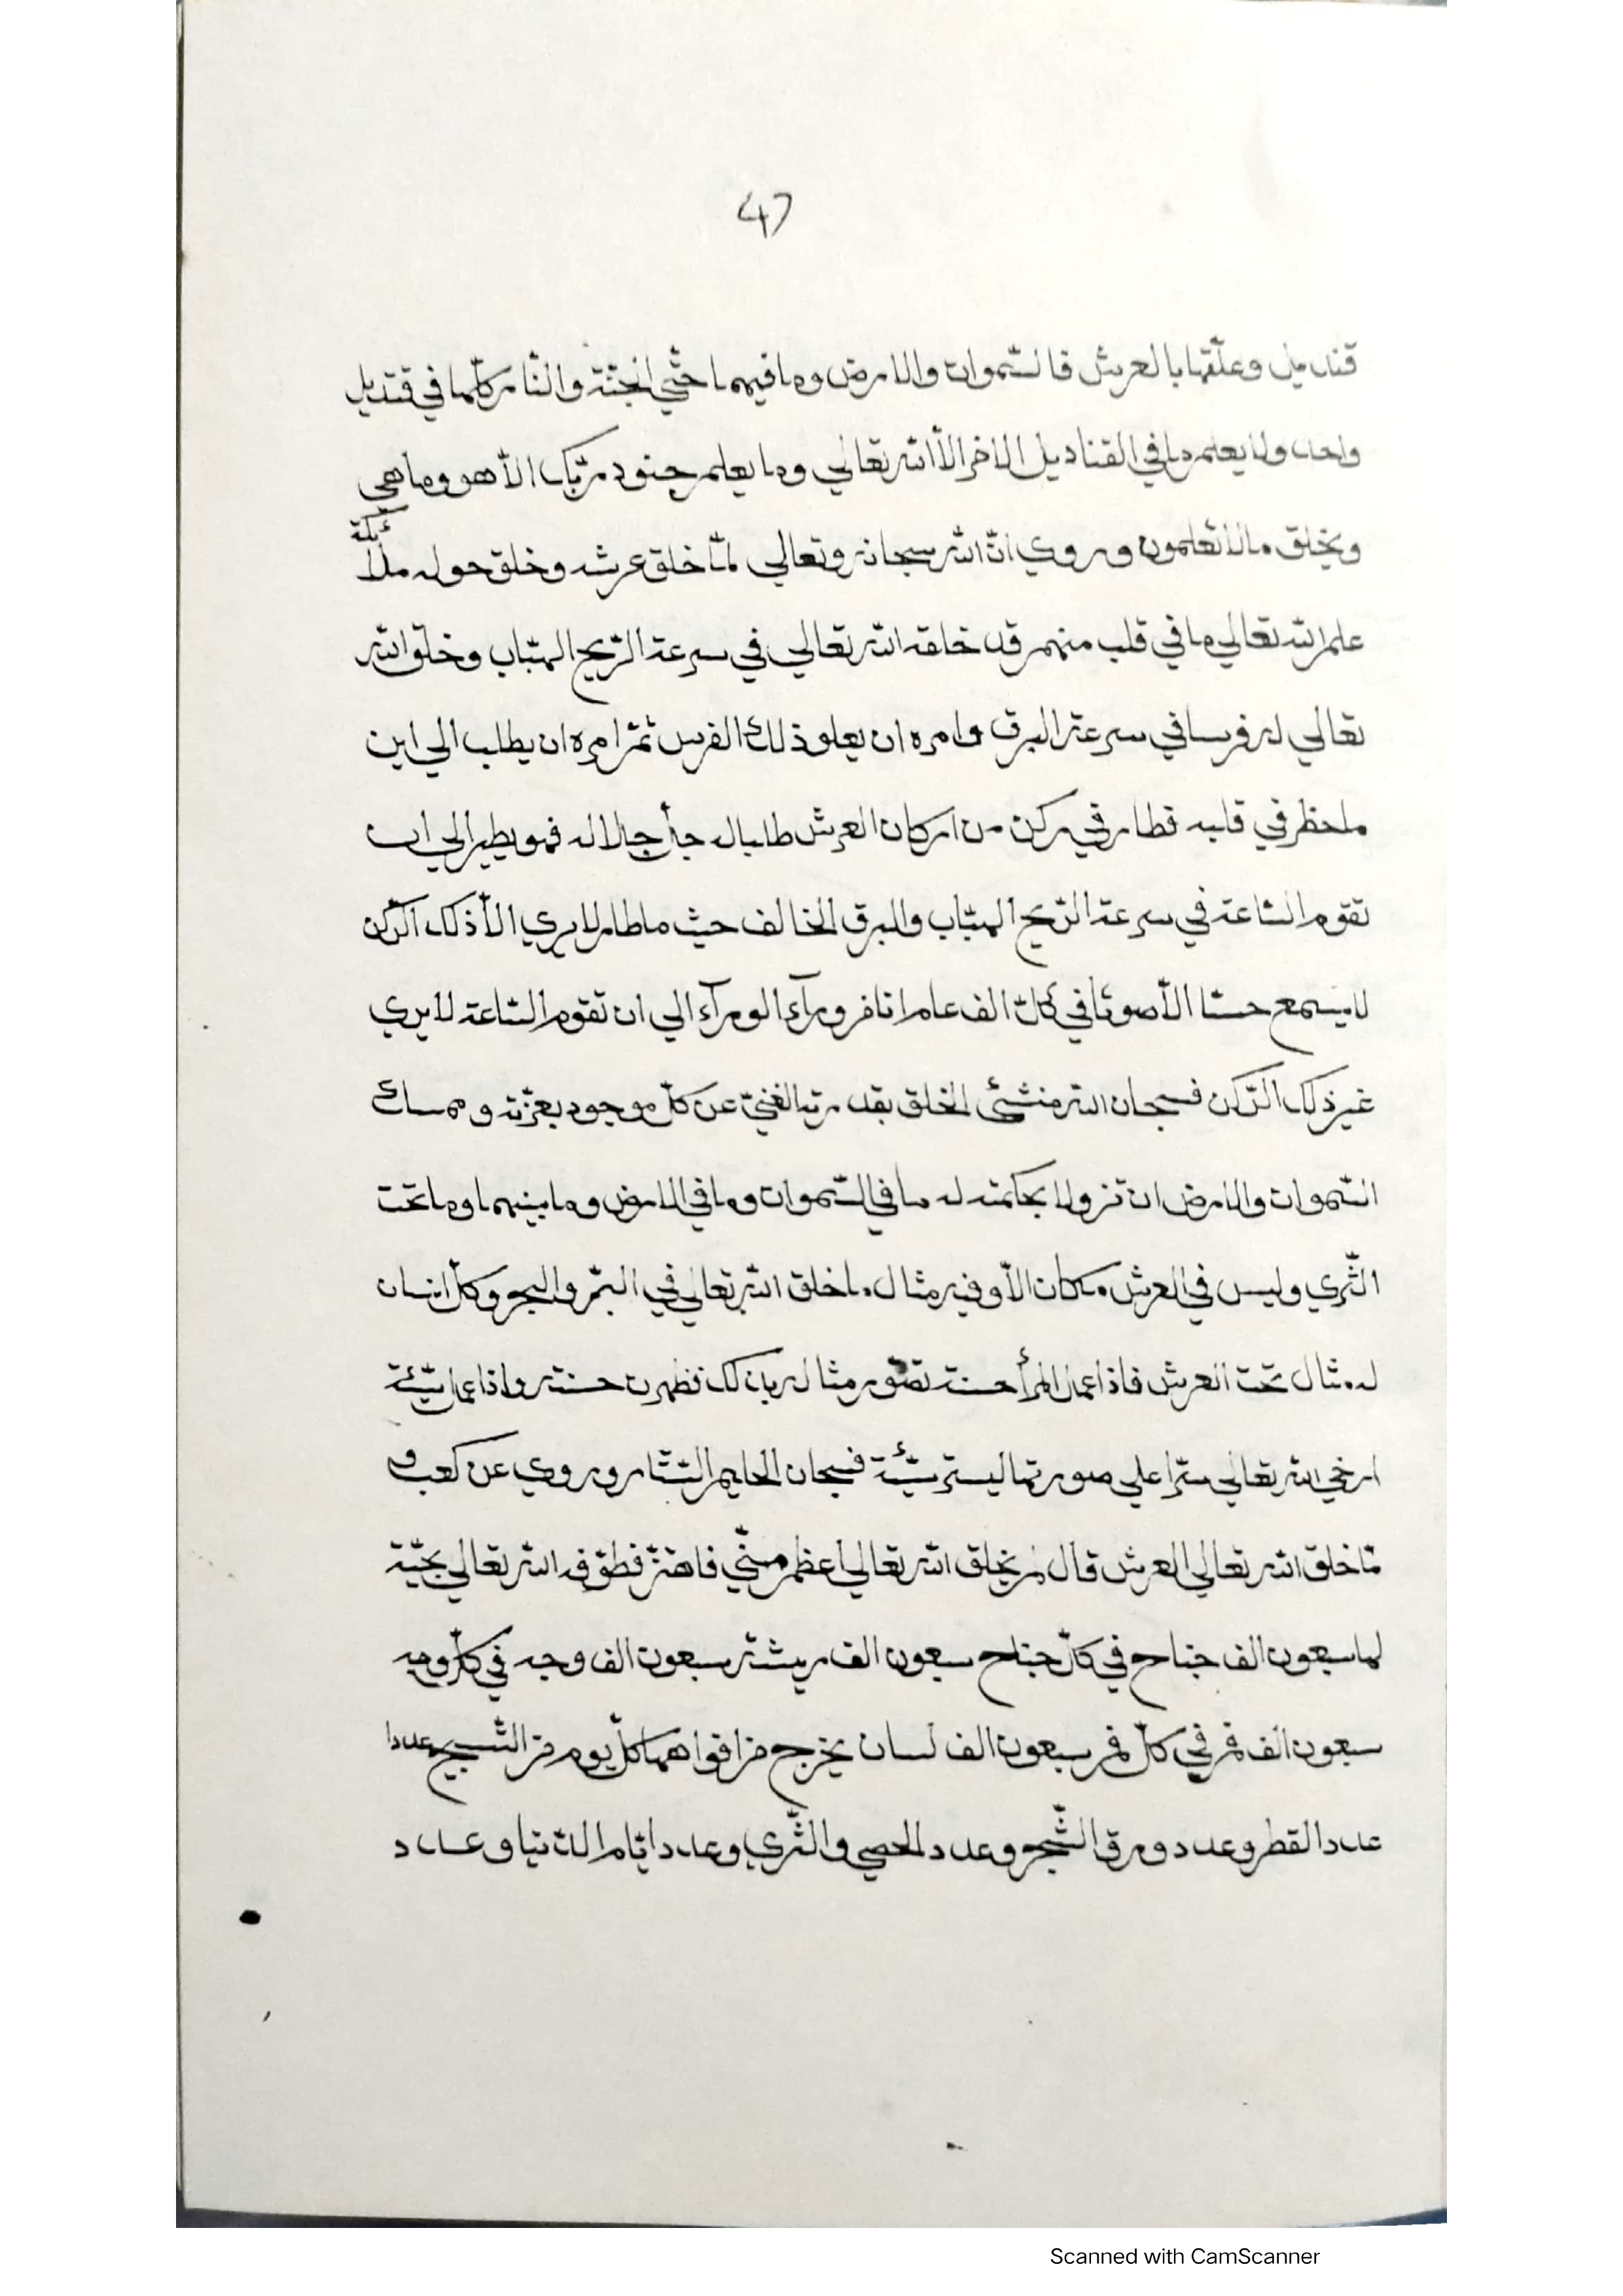 47
قنديل وعلّقها بالعرش فالسّموات والارض وما فيهما حتّي الجنّة والنّار كلّها في قنديل
واحد ولا يعلم ما في القناديل الاخر الّا الله تعالي وما يعلم جنود ربّك الّا هو وما هي
ويخلق مالا تعلمون وروي انّ الله سبحانه وتعالي لمّا خلق عرشه وخلق حوله ملائكة
علم الله تعالي ما في قلب منهم قد خلقه الله تعالي في سرعة الرّيح الهبّاب وخلق الله
تعالي له فرسا في سرعة البرق وامره ان يعلو ذلك الفرس ثمّ امره ان يطلب الي اين
ما حظر في قلبه فطار في ركن من اركان العرش طلبا له جلّ جلاله فهو يطير الي ان
تقوم السّاعة في سرعة الرّيح الهبّاب والبرق الخالف حيث ما طار لا يري الّا ذلك الرّكن
لا يسمع حسّا الّا صوتا في كلّ الف عام انا فر وراء الوراء الي ان تقوم السّاعة لا يري
غير ذلك الرّكن فسبحان الله منشئ الخلق بقدرته الغنيّ عن كلّ موجود بعزّته وممسك
السّموات والارض ان تزولا بحكمته له ما في السّموات وما في الارض وما بينهما وما تحت
الثّري وليس في العرش مكان الّا وفيه مثال ما خلق الله تعالي في البرّ والبحر وكلّ انسان
له مثال تحت العرش فاذا عمل المرأ حسنة تصّور مثاله بذلك فظهرت حسنته واذا عمل سيّئة
ارخي الله تعالي سترا علي صورتها ليستر سيّئة فسبحان الحليم السّتّار وروي عن كعب و
لمّا خلق الله تعالي العرش قال لم يخلق الله تعالي اعظم منّي فاهتزّ فطوّفه الله تعالي بحيّة
لها سبعون الف جناح في كلّ جناح سبعون الف ريشة سبعون الف وجه في كلّ وجه
سبعون الف فم في كلّ فم سبعون الف لسان يخرج من افواهها كلّ يوم من التّسبيح عددا
عدد القطر وعدد ورق الشّجر وعدد الحصي والثّري وعدد ايّام الدّنيا وعدد
Scanned with CamScanner